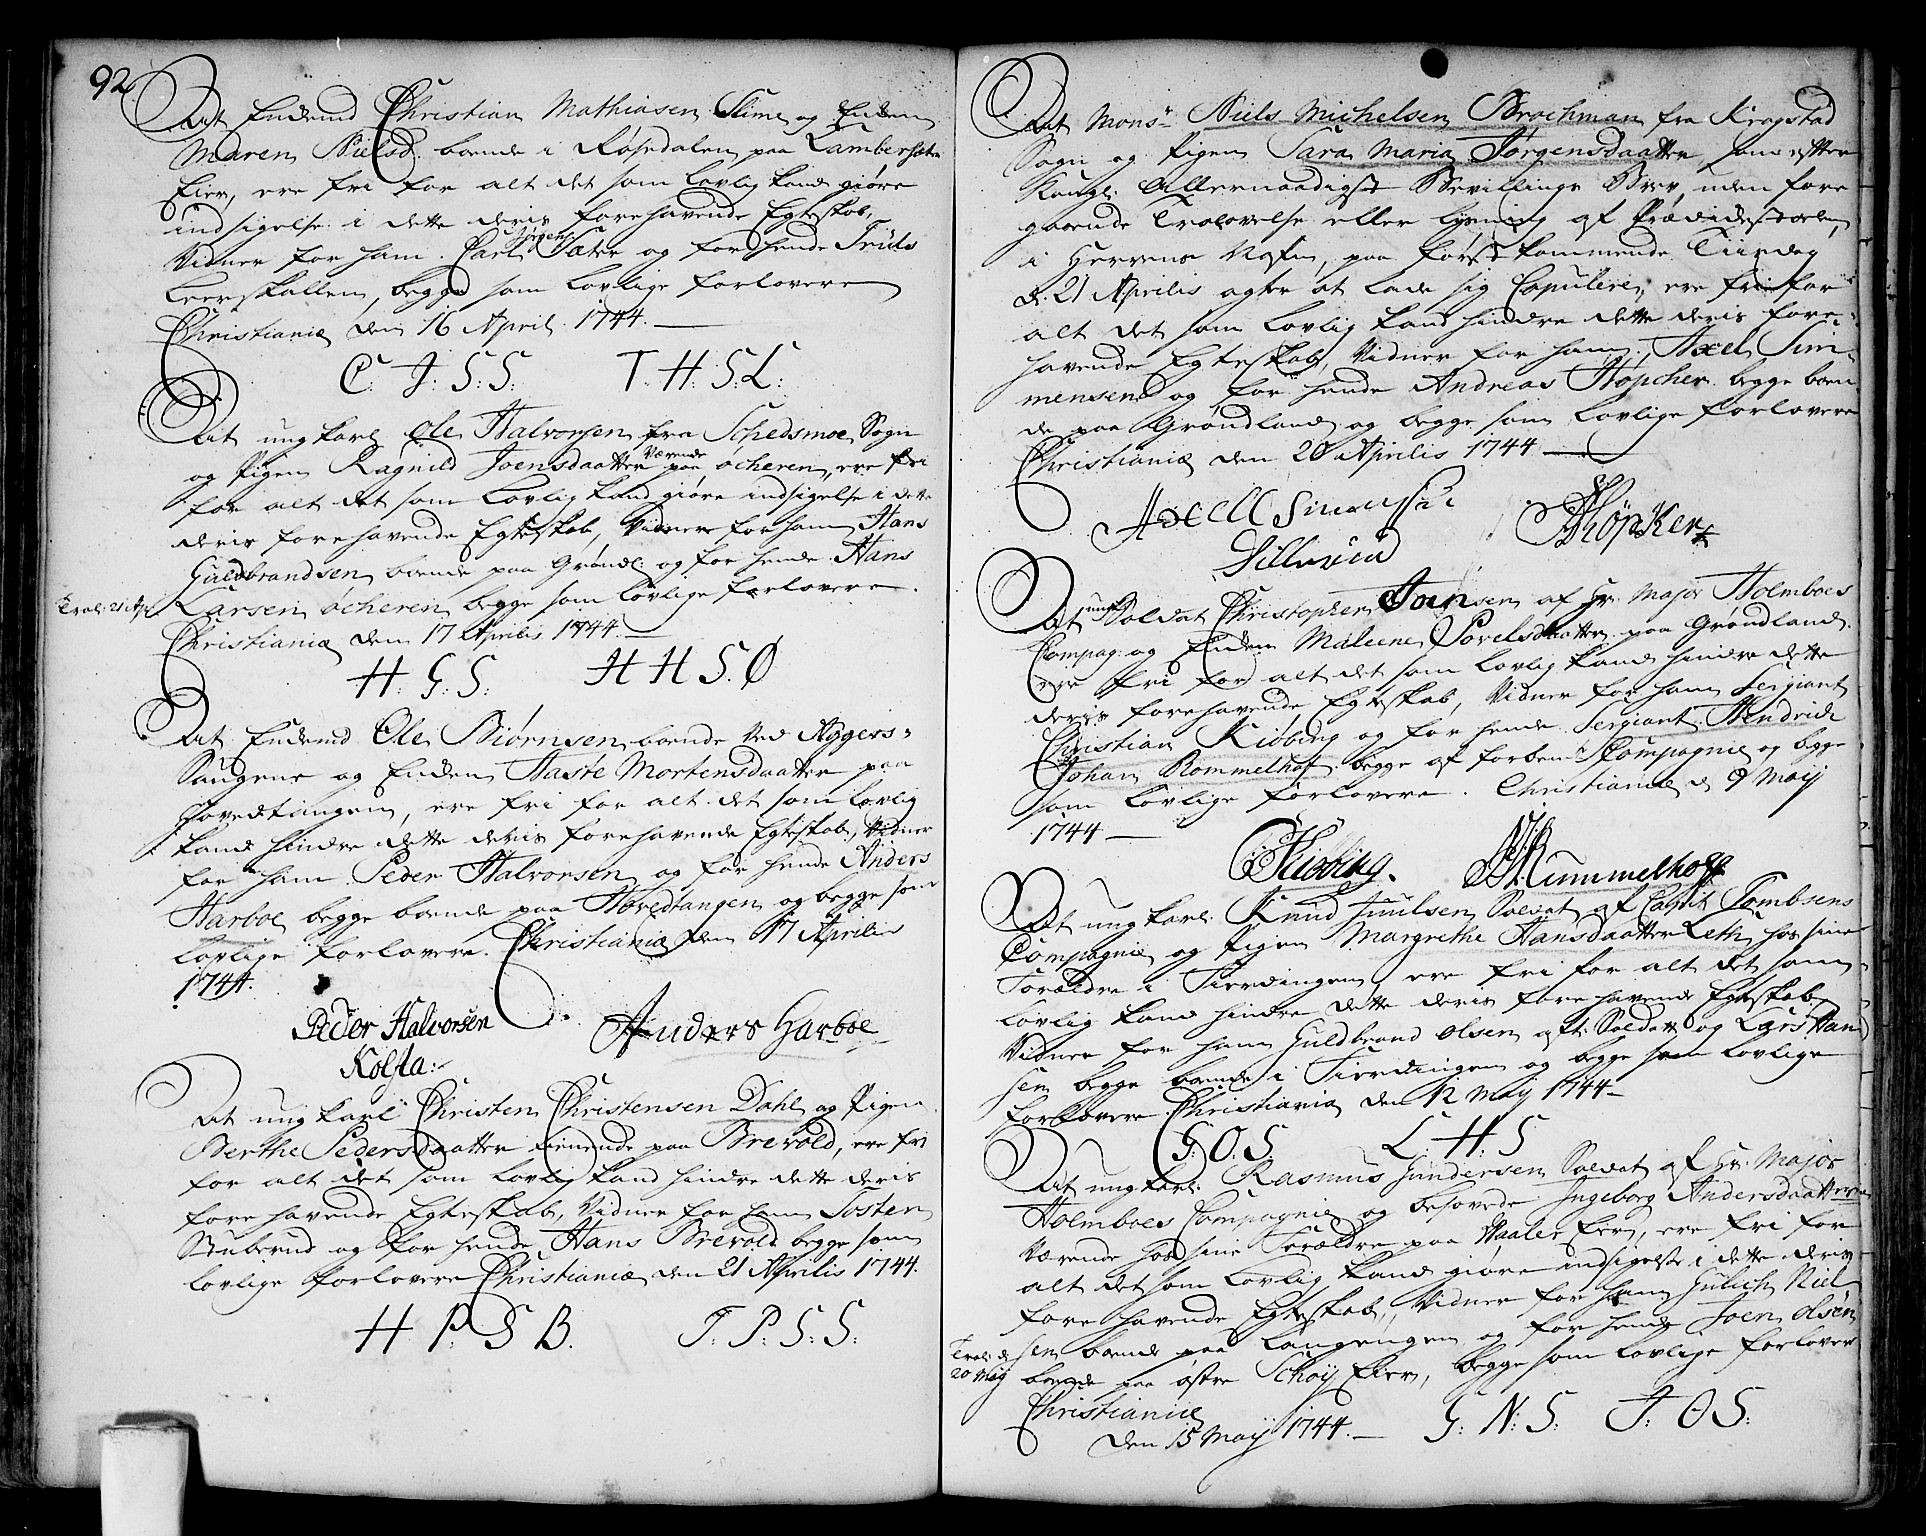 92
At Enkemd Christian Mathiasen Slime og Enken
Maren Nielsd. boende i Røsedalen paa Lambersæter
Eier, ere fri for alt det som lovlig kand giøre
indsigelse i dette deris forehavende Egteskab,
Vidner for ham Carl Jørgens: Sæter og for hende Truls
Leerskallen, begge som lovlige forlovere
Christiania den 16 April 1744.
C. J. S: S. T. H. S: L.
At ung karl Ole Halvorsen fra Schedsmoe Sogn
og Pigen Ragnild Joensdaatter Værende paa Ocheren, ere fri
for alt det som lovlig kand giøre indsigelse i dette
deris forehavende Egteskab, Vidner for ham Hans
Guldbrandsen boende paa Grønl: og for hende Hans
Larsen Ocheren begge som lovlige forlovere.
Trol: 21 Apr
Christiania den 17 Aprilis 1744.
H. G. S: H H S. Ø
At Enkemd Ole Biørnsen boende Ved Aggers-
Saugene og Enken Haste Mortensdaatter paa
Hovedtangen, ere fri for alt det som lovlig
kand hindre dette deris forehavende Egteskab, Vidner
for ham Peder Halvorsen og for hende Anders
Harboe begge boende paa Hovedtangen og begge som
lovlige forlovere. Christiania den 17 Aprilis
1744.
Peder Halvorsen Anders Harboe
Kolsta:
At ung karl Christen Christensen Dahl og Pigen
Berthe Pedersdaatter tienende paa Brevold, ere fri
for alt det som lovlig kand hindre dette deris
fore havende Egteskab, Vidner for ham Tosten
Buberud og for hende Hans Brevold begge som
lovlige forlovere Christiania den 21 Aprilis 1744.
H P: S B. T. P: S: S:
At Monsr Niels Michelsen Brochman fra Kragstad
Sogn og Pigen Sara Maria Jørgensdaatter som efter
Kongl: Allernaadigst Bevillings Brev, uden fore
gaaende Trolovelse eller lysning af Prædikestolen,
i Herrens Nafn, paa først kommende Tiirsdag
d. 21 Aprilis agter at lade sig Copulere, ere fri for
alt det som lovlig kand hindre dette deris fore-
havende Egteskab, Vidner for ham, Axel Sim-
mensen og for hende Andreas Høpcher begge boen
de paa Grønland og begge som lovlige forlovere
Christiania den 20 Aprilis 1744
Axell Simenssen AHøpker
At ung Soldat Christopher Joensen af Hr. Major Holmboes
Compag: og Enken Maleene Povelsdaatter paa Grønland.
ere fri for alt det som lovlig kand hindre dette
deris forehavende Egteskab, Vidner for ham Sergiant
Christian Kiøbing og for hende Sergiant Hendrich
Johan Rommelhof begge af forben Compagnie og begge
som lovlige forlovere. Christiania d 9 Maij
1744
CKiøbing. HRummelhoff
At ung karl Knud Juulsen Soldat af Capit Tombsens
Compagnie og Pigen Margrethe Hansdaatter Leth hos sine
Forældre i Fierdingen, ere fri for alt det som
lovlig kand hindre dette deris fore havende Egteskab,
Vidner for ham Guldbrand Olsen aft: Soldat og Lars Han
sen begge boende i Fierdingen og begge som lovlige
forlovere Christiania den 12 Maij 1744
G. O. S. L H. S
At ung karl Rasmus Gundersen Soldat af Hr. Major
Holmboes Compagnie og besovede Ingeborg Andersdaatter
Værende hos sine Forældre paa Vaaler Eier, ere fri for
alt det som lovlig kand giøre indsigelse i dette deris
fore havende Egteskab, Vidner for ham Gulich Niel
sen boende paa Langengen og for hende Joen Olsen
Trol: d
20 Maij
boende paa østre Schøy Eier, begge som lovlige forlover
Christiania
den 15 Maij 1744. G: N: S. J: O S: